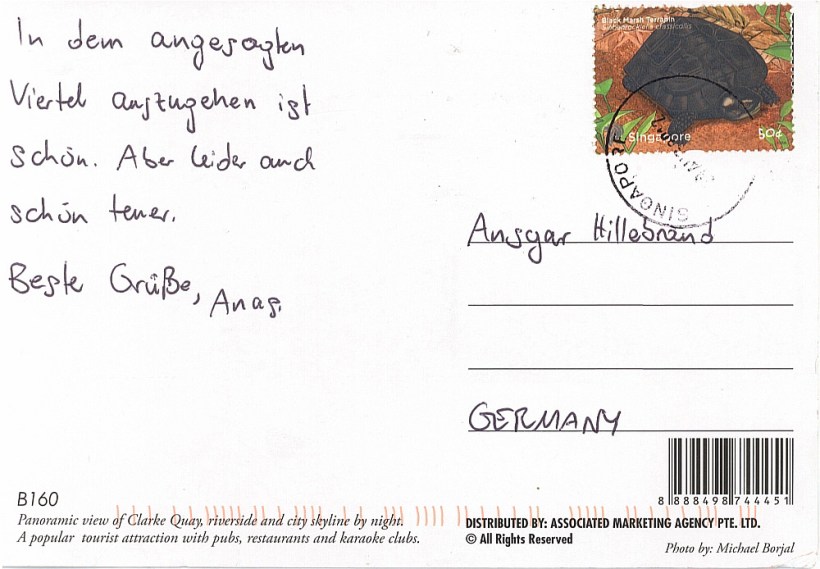 In dem angesagten
Viertel auszugehen ist
schön. Aber leider auch
schön teuer.
Beste Grüße, Anas.
Black Marsh Terrapin
Siebenrockiella crassicollis
Singapore 50¢
SINGAPORE
Ansgar Hillebrand
GERMANY
8 888498 744451
B160
Panoramic view of Clarke Quay, riverside and city skyline by night.
A popular tourist attraction with pubs, restaurants and karaoke clubs.
DISTRIBUTED BY: ASSOCIATED MARKETING AGENCY PTE. LTD.
© All Rights Reserved
Photo by: Michael Borjal